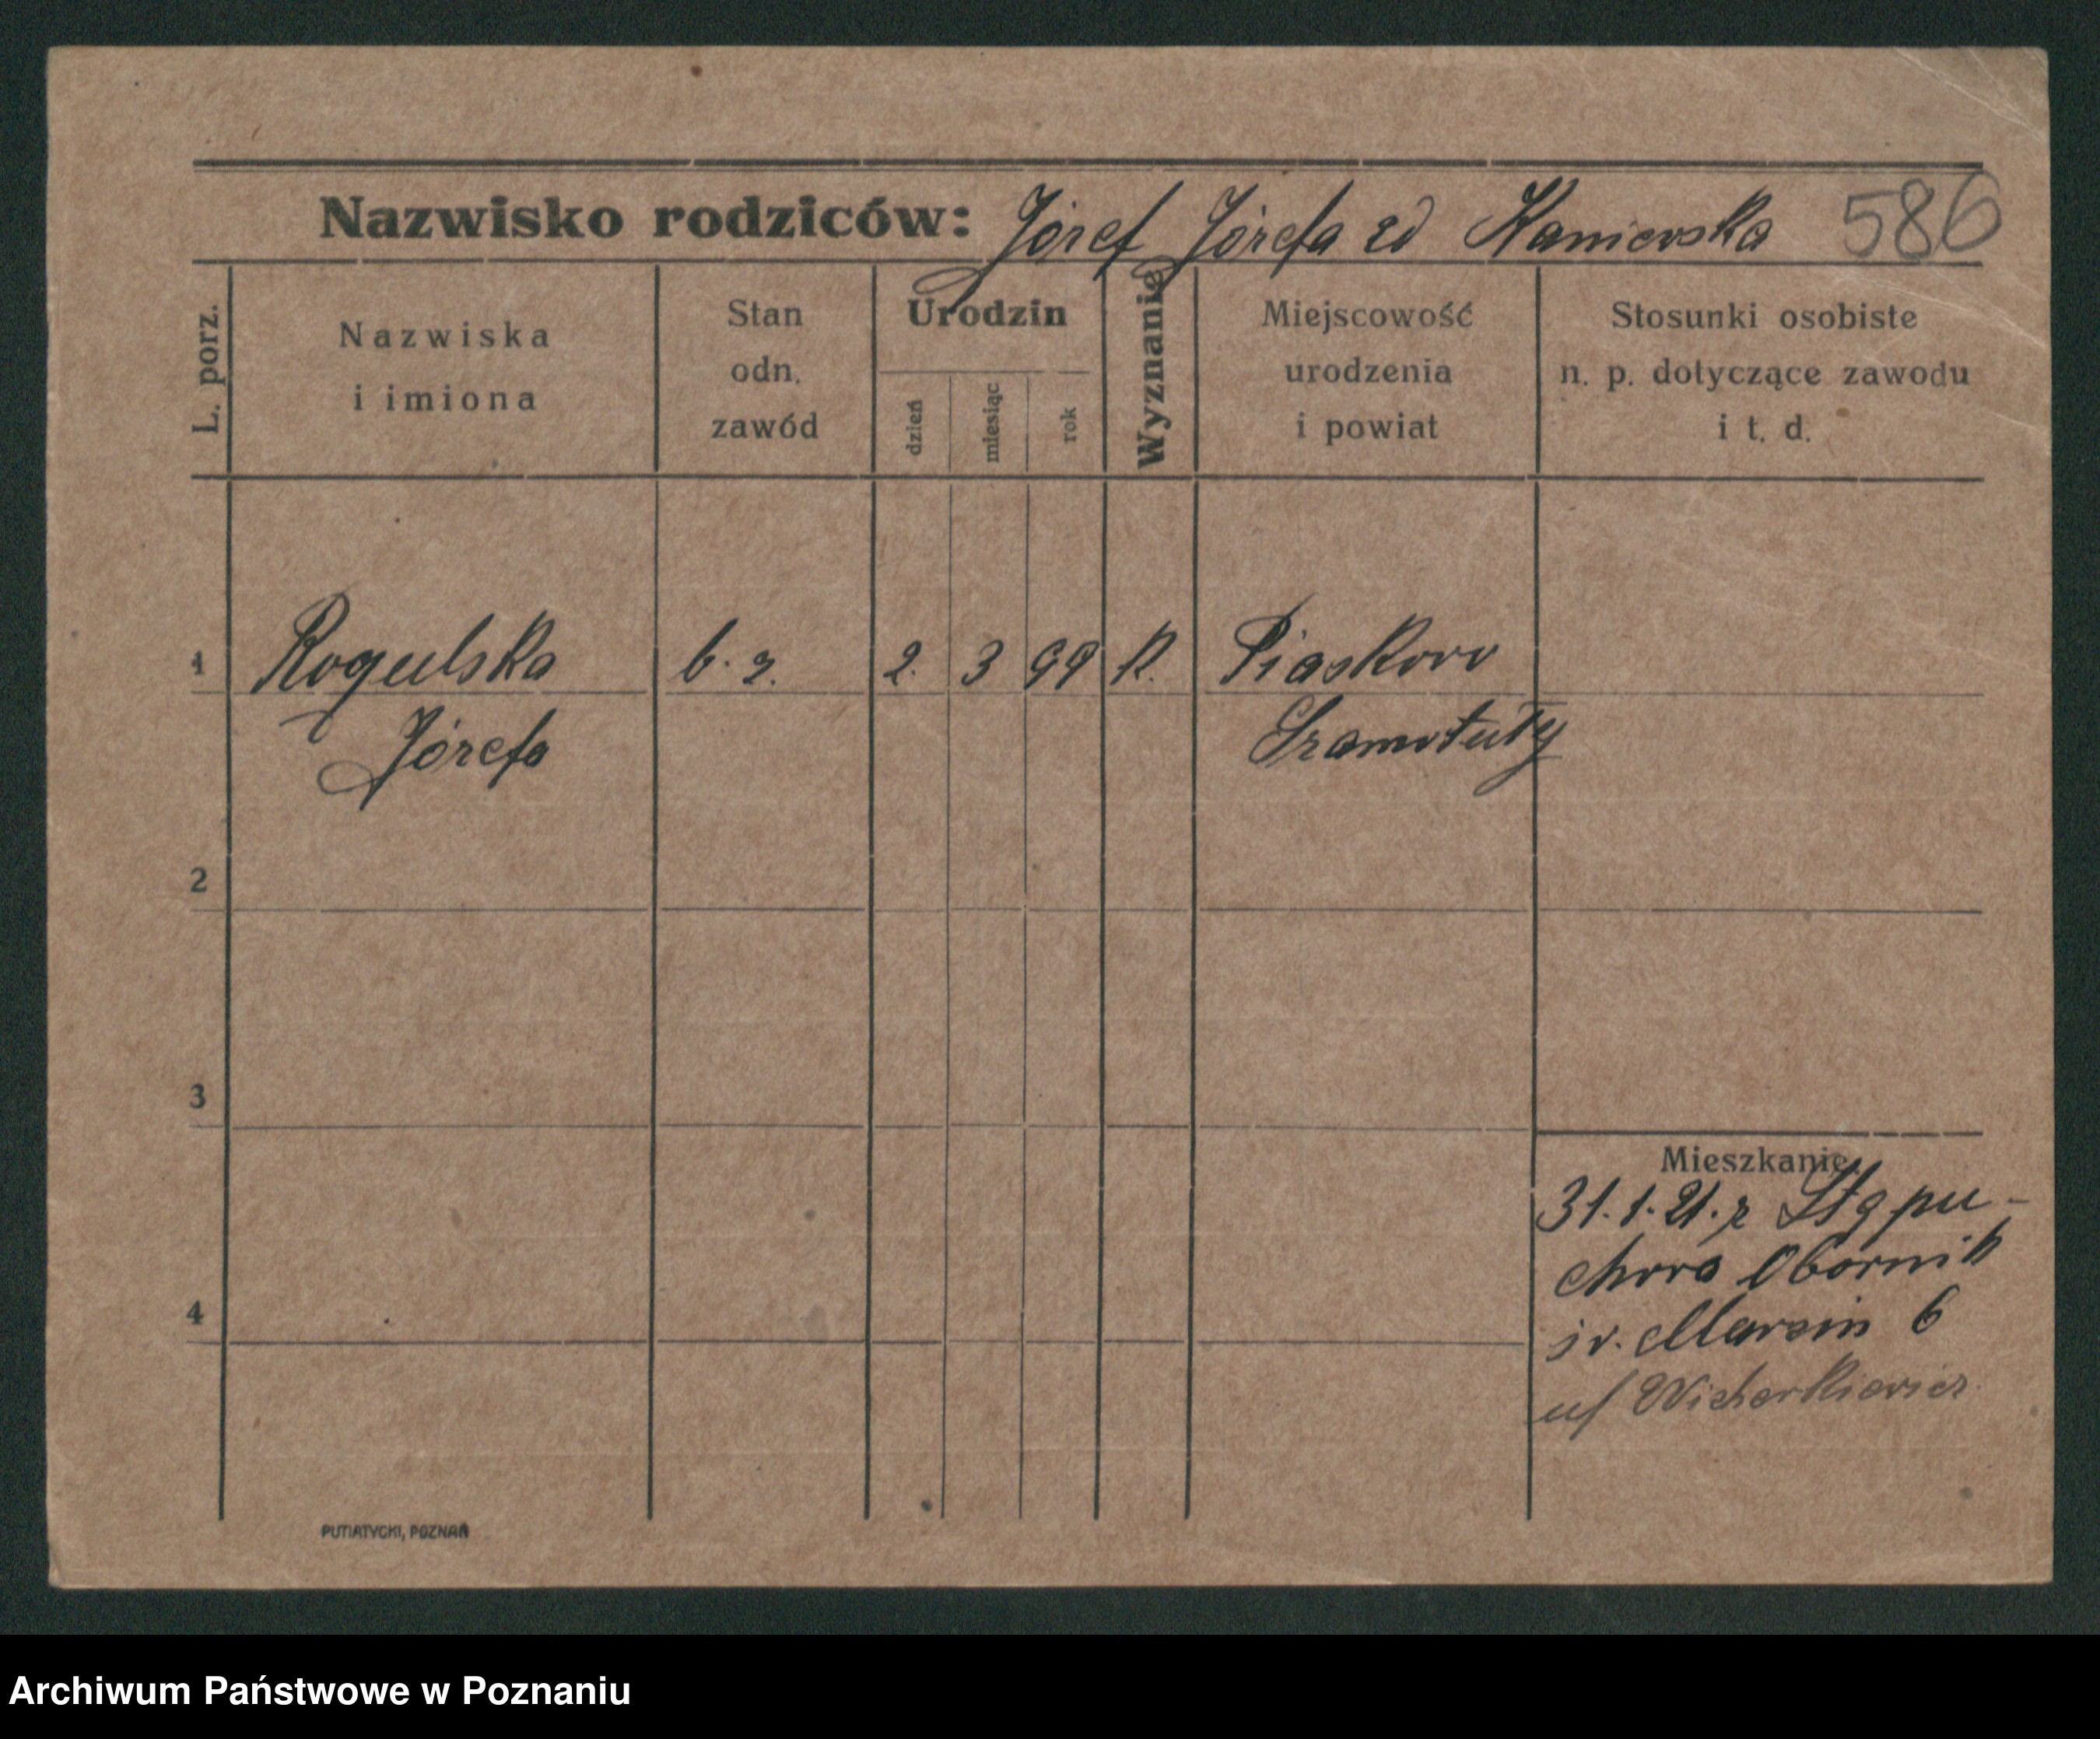 Nazwisko rodziców: Józef Józefa zd Kaniewska 586
L. porz.
Nazwiska i imiona
Stan odn. zawód
Urodzin
dzień miesiąc rok
Wyznanie
Miejscowość urodzenia i powiat
Stosunki osobiste n. p. dotyczące zawodu i t. d.
1 Rogulska b. z. 2. 3 99 K. Piaskowo
Józefa Szamotuły
2
3
Mieszkanie
31.1.21. z
chowo Obornik
4
św. Marcin 6
u/ Wicherkiewicz
PUTIATYCKI, POZNAŃ
Archiwum Państwowe w Poznaniu